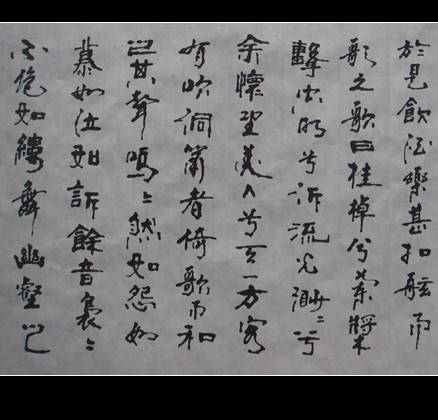 於是飲酒樂甚扣舷而
歌之歌曰桂棹兮蘭槳
擊空明兮泝流光渺〻兮
余懷望美人兮天一方客
有吹洞簫者倚歌而和
之其聲嗚〻然如怨如
慕如泣如訴餘音裊〻
不絕如縷舞幽壑之